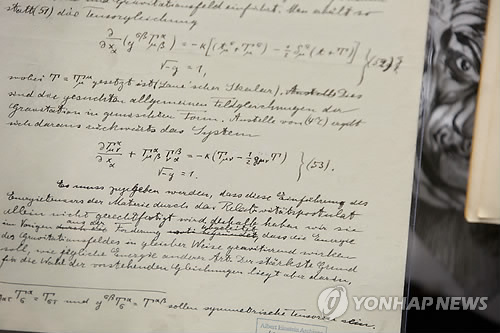 Gravitationsfeld einführt. Man erhält so
statt (51) die Tensorgleichung
∂/∂x_α (g^{σβ} Γ^α_{μβ}) = -κ[(t_μ^σ + T_μ^σ) - 1/2 δ_μ^σ (t + T)] } (52)
√-g = 1,
wobei T = T_μ^μ gesetzt ist (Laue'scher Skalar). Dies
sind die gesuchten allgemeinen Feldgleichungen der
Gravitation in gemischter Form. Anstelle von (47) ergibt
sich daraus rückwärts das System
∂Γ^α_{μν}/∂x_α + Γ^α_{μβ} Γ^β_{να} = -κ(T_{μν} - 1/2 g_{μν} T) } (53).
√-g = 1.
Es muss zugegeben werden, dass diese Einführung des
Energietensors der Materie durch das Relativitätspostulat
allein nicht gerechtfertigt wird; deshalb haben wir sie
im Vorigen aus der Forderung abgeleitet, dass die Energie
des Gravitationsfeldes in gleicher Weise gravitierend wirken
soll, wie jegliche Energie anderer Art. Der stärkste Grund
für die Wahl der vorstehenden Gleichungen liegt aber darin,
und g^{σβ} T_σ^α = T^{αβ} sollen symmetrische Tensoren sein.
Albert Einstein Archives
YONHAP NEWS